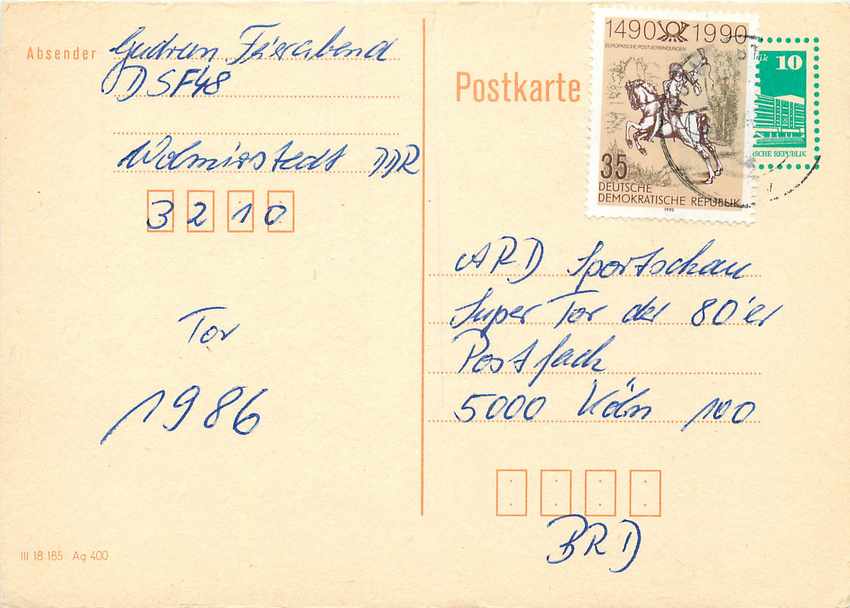 Absender Gudrun Feierabend
DSF48
Wolmirstedt DDR
3210
Tor
1986
III 18 185 Ag 400
Postkarte
1490 1990
EUROPÄISCHE POSTVERBINDUNGEN
35
DEUTSCHE
DEMOKRATISCHE REPUBLIK
1990
10
REPUBLIK
ARD Sportschau
Super Tor der 80'er
Postfach
5000 Köln 100
BRD